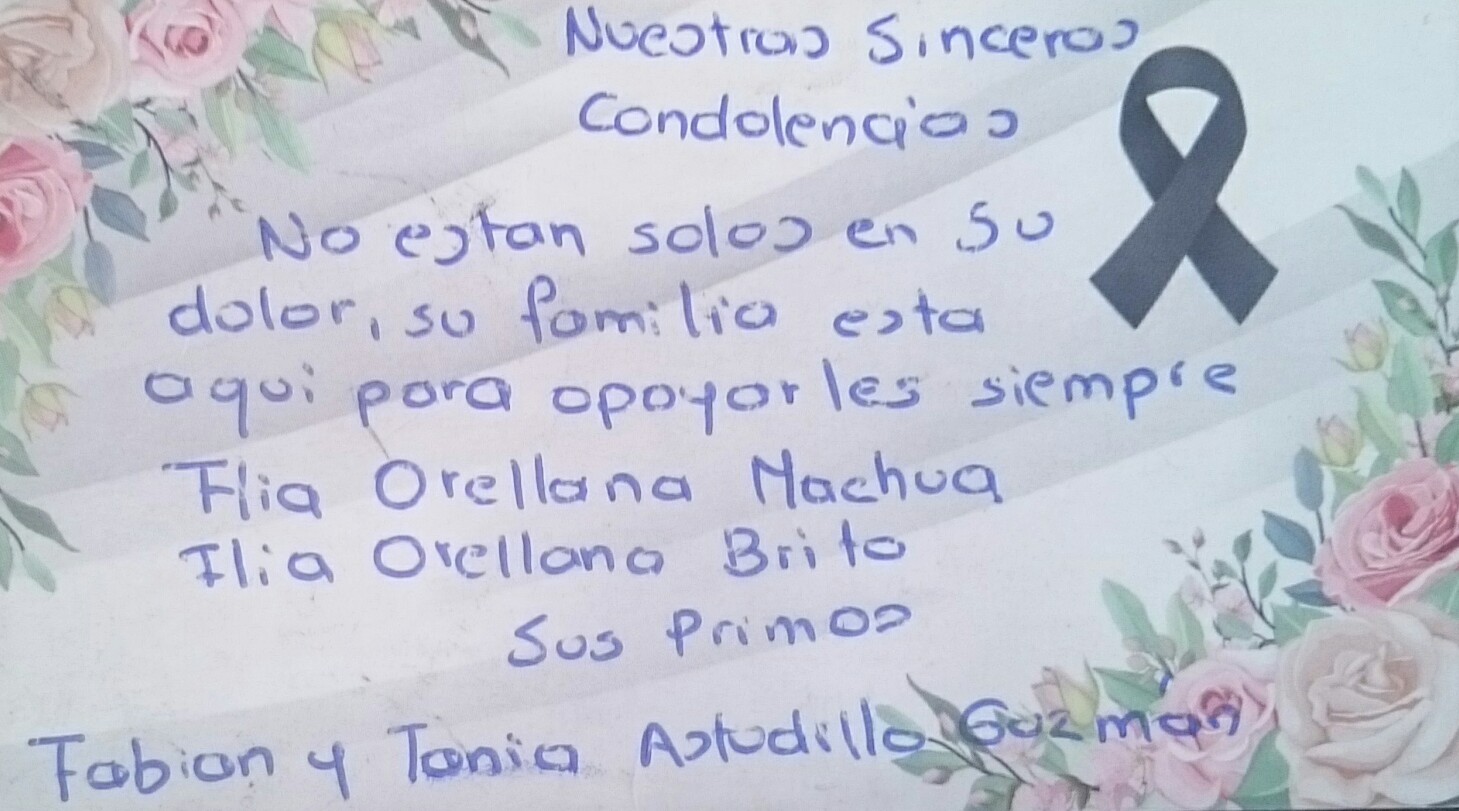 Nuestras Sinceras
Condolencias
No estan solos en su
dolor, su familia esta
aqui para apoyarles siempre
Flia Orellana Machua
Flia Orellana Brito
Sus Primos
Fabian y Tania Astudillo Guzmán